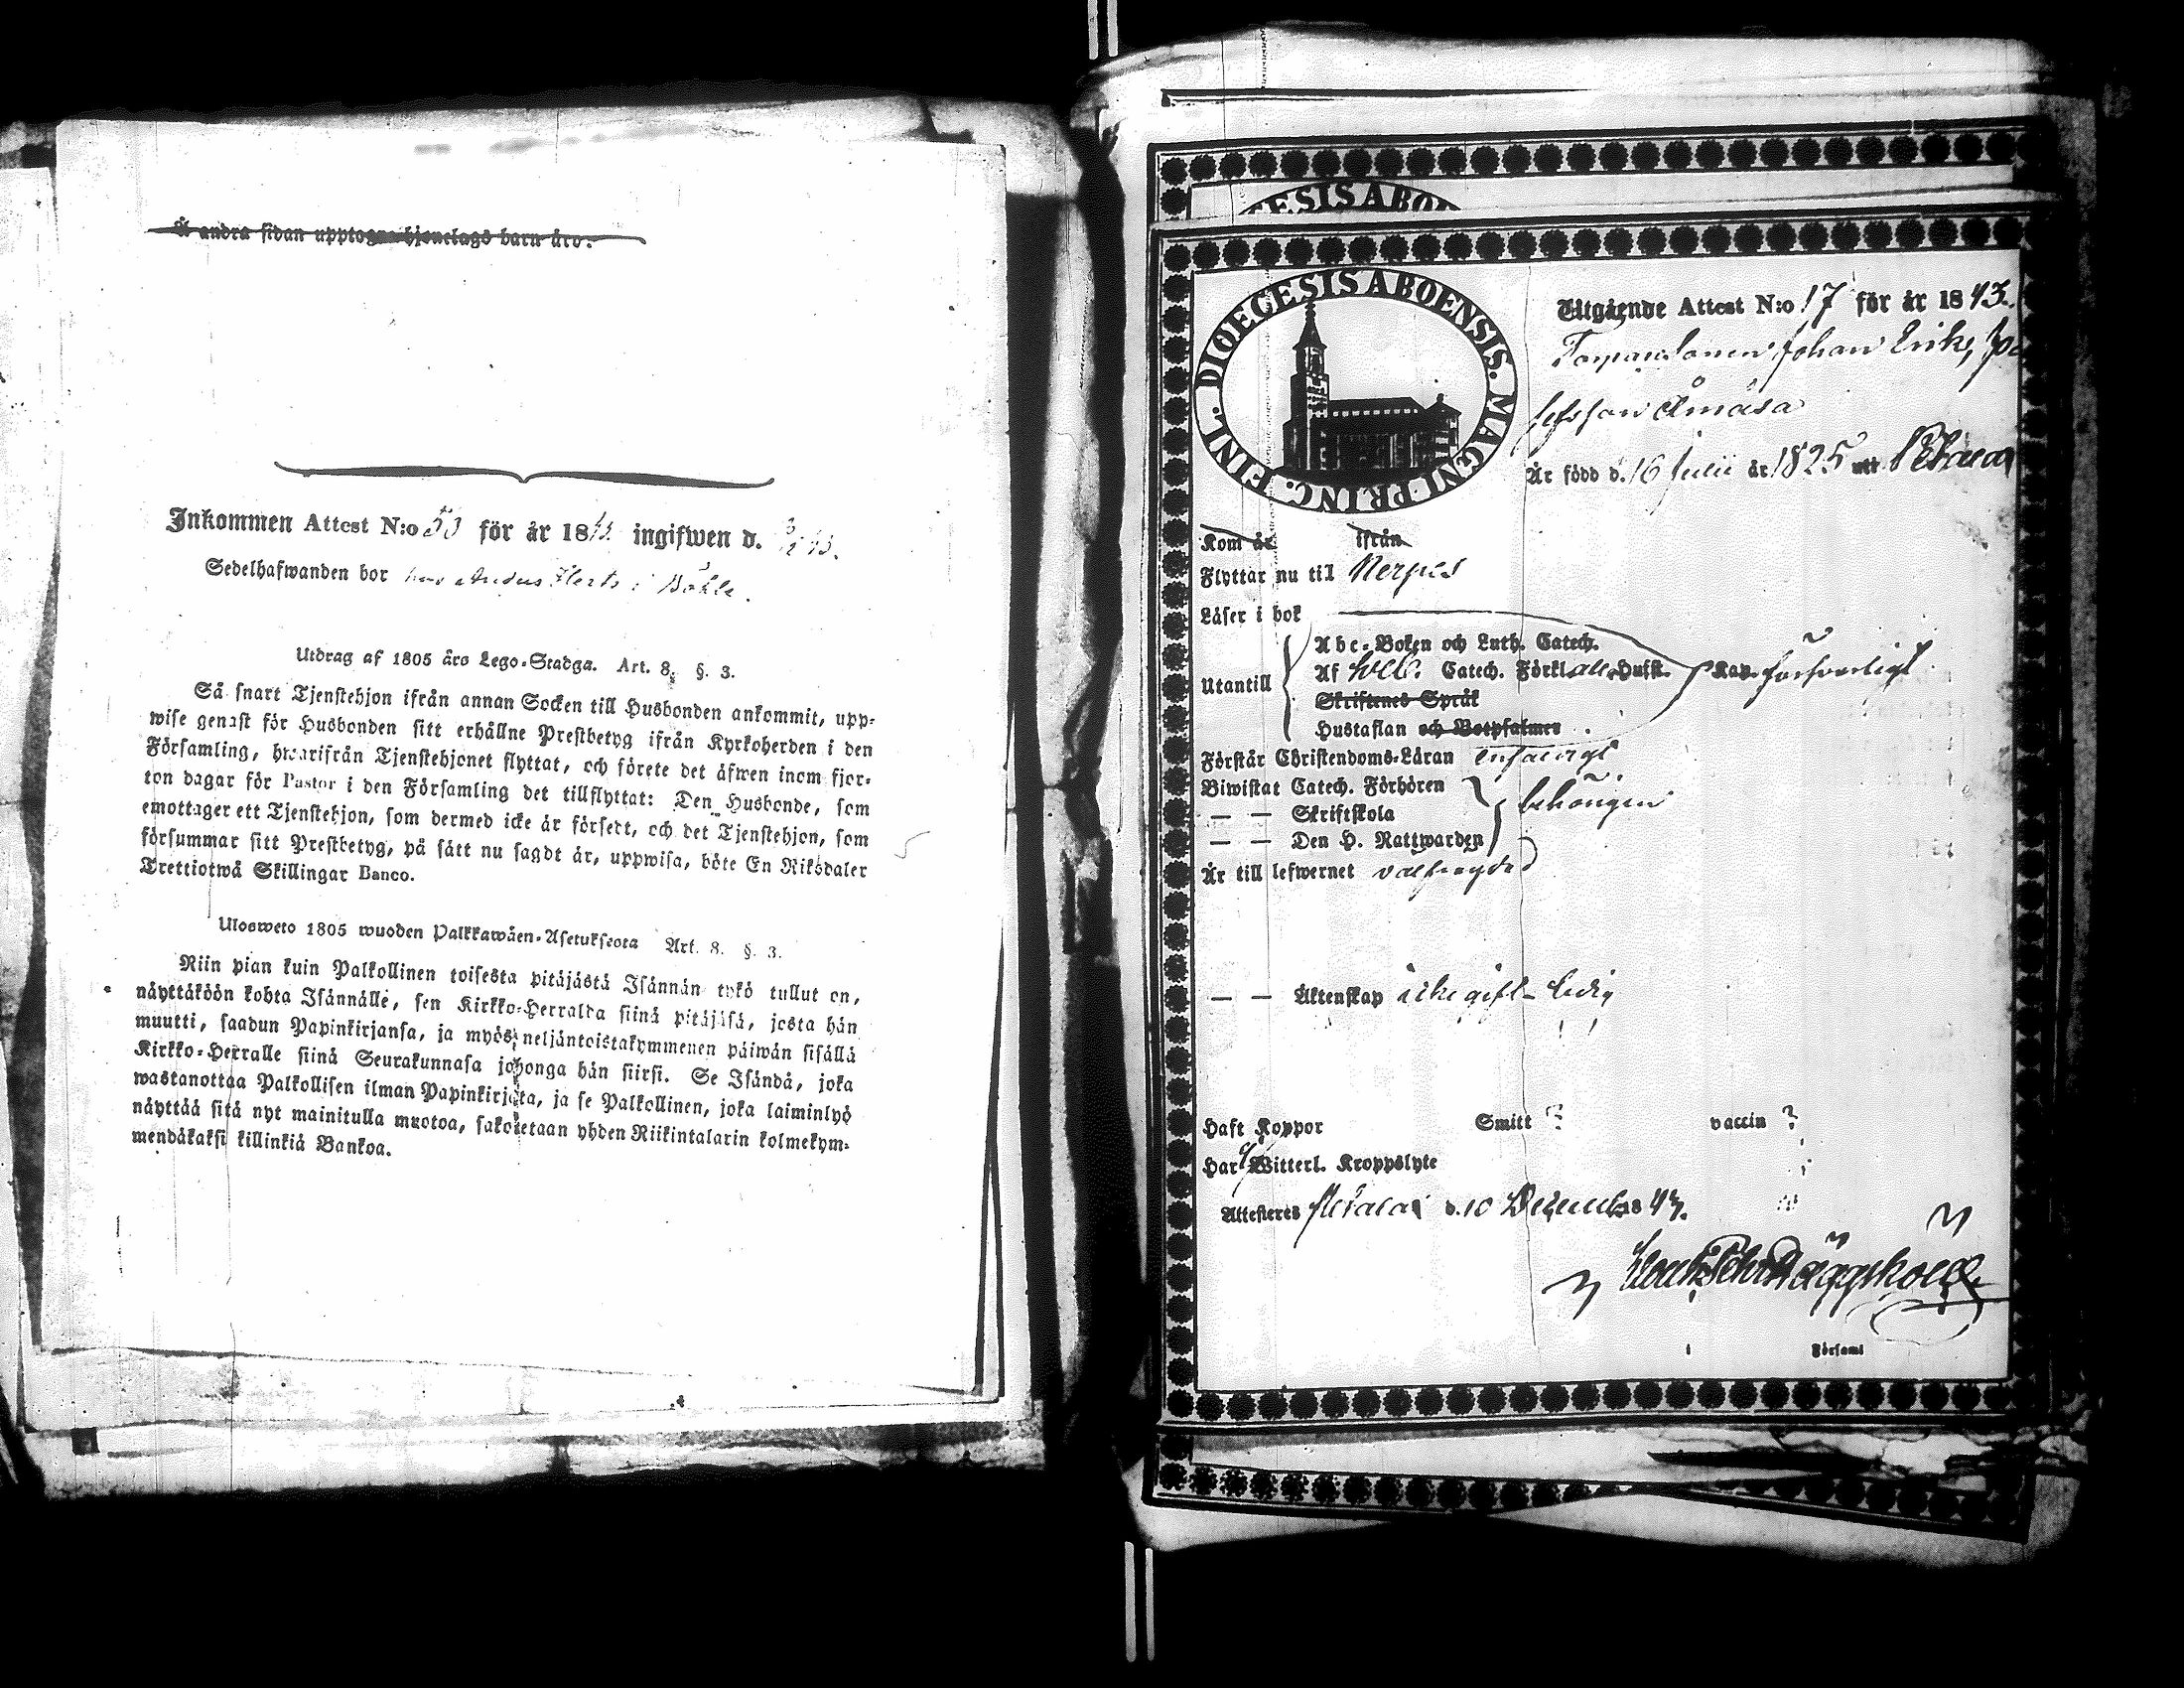 Å andra sidan upptagne hjonelags barn äro:
Inkommen Attest N:o 53 för år 1843 ingifwen d.
Sedelhafwanden bor hos Anders Klerts i Böhle.
Utdrag af 1805 års Lego-Stadga. Art. 8. §. 3.
Så snart Tjenstehjon ifrån annan Socken till Husbonden ankommit, upp-
wise genast för Husbonden sitt erhållne Prestbetyg ifrån Kyrkoherden i den
Församling, hwarifrån Tjenstehjonet flyttat, och förete det äfwen inom fjor-
ton dagar för Pastor i den Församling det tillflyttat: Den Husbonde, som
emottager ett Tjenstehjon, som dermed icke är försedt, och det Tjenstehjon, som
försummar sitt Prestbetyg, på sätt nu sagdt är, uppwisa, böte En Riksdaler
Trettiotwå Skillingar Banco.
Ulosweto 1805 wuoden Palkkawäen-Asetuksesta Art. 8. §. 3.
Niin pian kuin Palkollinen toisesta pitäjästä Isännän tykö tullut on,
näyttäköön kohta Isännälle, sen Kirkko-Herralda siinä pitäjäsä, josta hän
muutti, saadun Papinkirjansa, ja myös neljäntoistakymmenen päiwän sisällä
Kirkko-Herralle siinä Seurakunnasa johonga hän siirsi. Se Isändä, joka
wastanottaa Palkollisen ilman Papinkirjata, ja se Palkollinen, joka laiminlyö
näyttää sitä nyt mainitulla muotoa, sakotetaan yhden Riikintalarin kolmekym-
mendäkaksi killinkiä Bankoa.
DIOECESIS ABOENSIS. MAGNI PRINC. FINL.
Utgående Attest N:o 17 för år 1843.
Johan Erik, Jo
sefsson Åmåsa
Är född d. 16 Julii år 1825 uti
Kom år ifrån
Flyttar nu til Nerpes
Läser i bok
Abc-Boken och Luth. Catech.
Utantill Af Sveb. Catech. Förkl. alle Hufst. Kap. försvarligt
Skriftenes Språk
Hustaflan och Botpsalmer
Förstår Christendoms-Läran enfaldigt
Biwistat Catech. Förhören
— — Skriftskola behörigen
— — Den H. Nattwarden
Är till lefwernet välfrejdad
— — Äktenskap icke gift - ledig
Haft Koppor Smitt ? vaccin ?
Har Witterl. Kroppslyte
Attesteras d. 10 December 1843.
Församl